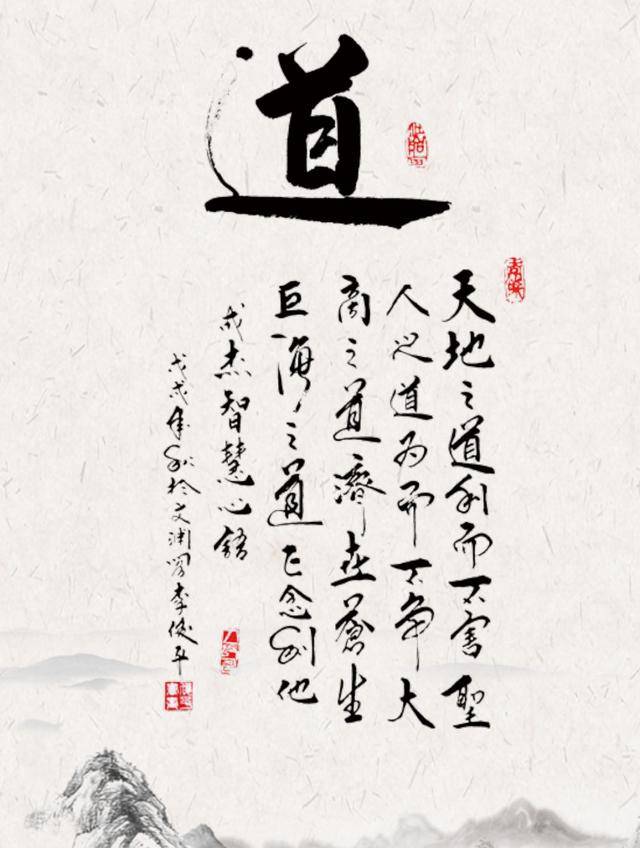 道
天地之道利而不害聖
人之道为而不争大
商之道濟在蒼生
巨海之道正念利他
成杰智慧心語
戊戌年秋於文渊阁李俊平